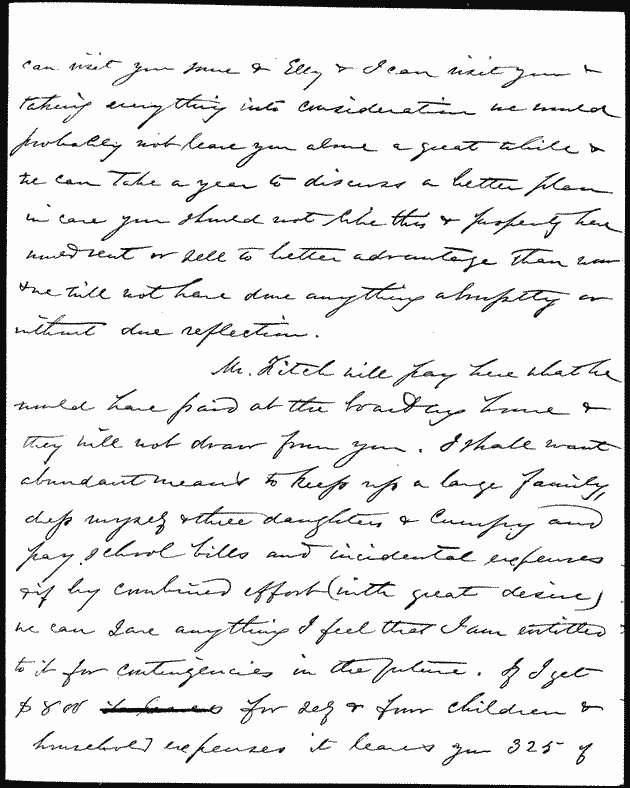 can visit you some & Elly & I can visit you &
taking everything into consideration we would
probably not leave you alone a great while &
we can take a year to discuss a better plan
in case you should not like this & property here
would rent or sell to better advantage than now
& we will not have done anything abruptly or
without due reflection.
Mr. Fitch will pay here what he
would have paid at the boarding house &
they will not draw from you. I shall want
abundant means to keep up a large family,
myself & three daughters & and
pay school bills and incidental expenses
& if by combined effort (with great desire)
we can save anything I feel that I am entitled
to it for contingencies in the future. If I get
$800 for self & four children &
household expenses it leaves you 325 of